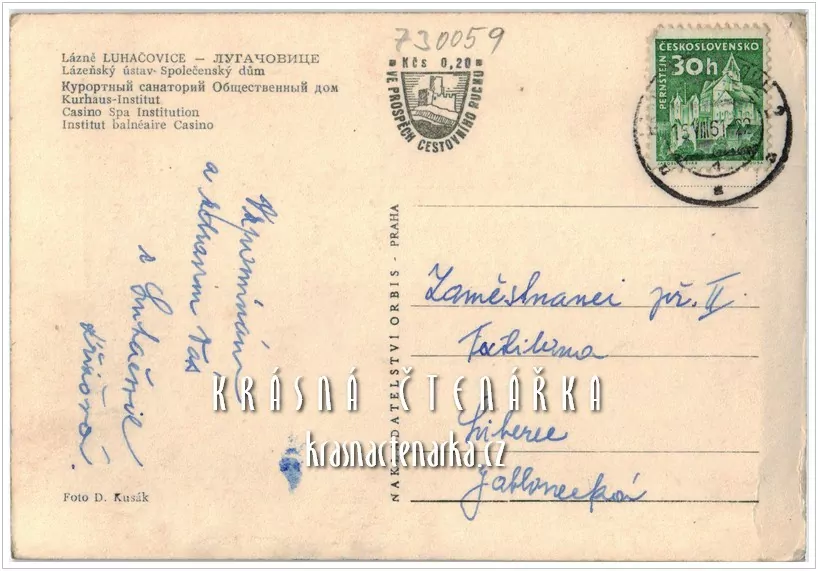 730059
Lázně LUHAČOVICE – ЛУГАЧОВИЦЕ
Lázeňský ústav- Společenský dům
Курортный санаторий Общественный дом
Kurhaus-Institut
Casino Spa Institution
Institut balnéaire Casino
Kčs 0,20
VE PROSPĚCH CESTOVNÍHO RUCHU
ČESKOSLOVENSKO
30h
PERNŠTEJN
Vzpomínám
a zdravím Vás
z Luhačovic
NAKLADATELSTVÍ ORBIS - PRAHA
Zaměstnanci pr. II
Textilana
Liberec
Jablonecká
KRÁSNÁ ČTENÁŘKA
krasnactenarka.cz
Foto D. Rusák